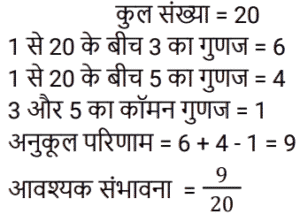 कुल संख्या = 20
1 से 20 के बीच 3 का गुणज = 6
1 से 20 के बीच 5 का गुणज = 4
3 और 5 का कॉमन गुणज = 1
अनुकूल परिणाम = 6 + 4 - 1 = 9
आवश्यक संभावना = 9/20